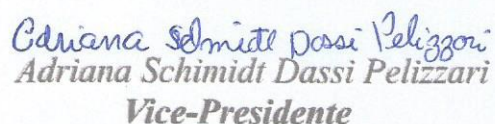 Adriana Schmidt Dassi Pelizzari
Adriana Schimidt Dassi Pelizzari
Vice-Presidente